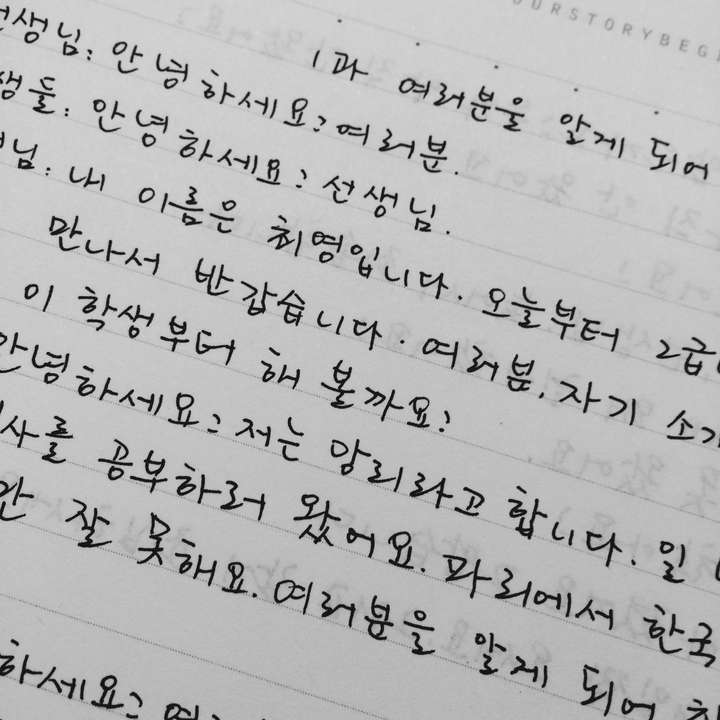 OURSTORYBEGI
1과 여러분을 알게 되어
선생님: 안녕하세요? 여러분.
생들: 안녕하세요? 선생님.
님: 내 이름은 최영입니다. 오늘부터 2급
만나서 반갑습니다. 여러분, 자기 소개
이 학생부터 해 볼까요?
안녕하세요? 저는 앙리라고 합니다. 일
사를 공부하러 왔어요. 파리에서 한국
잘 못해요. 여러분을 알게 되어
하세요?